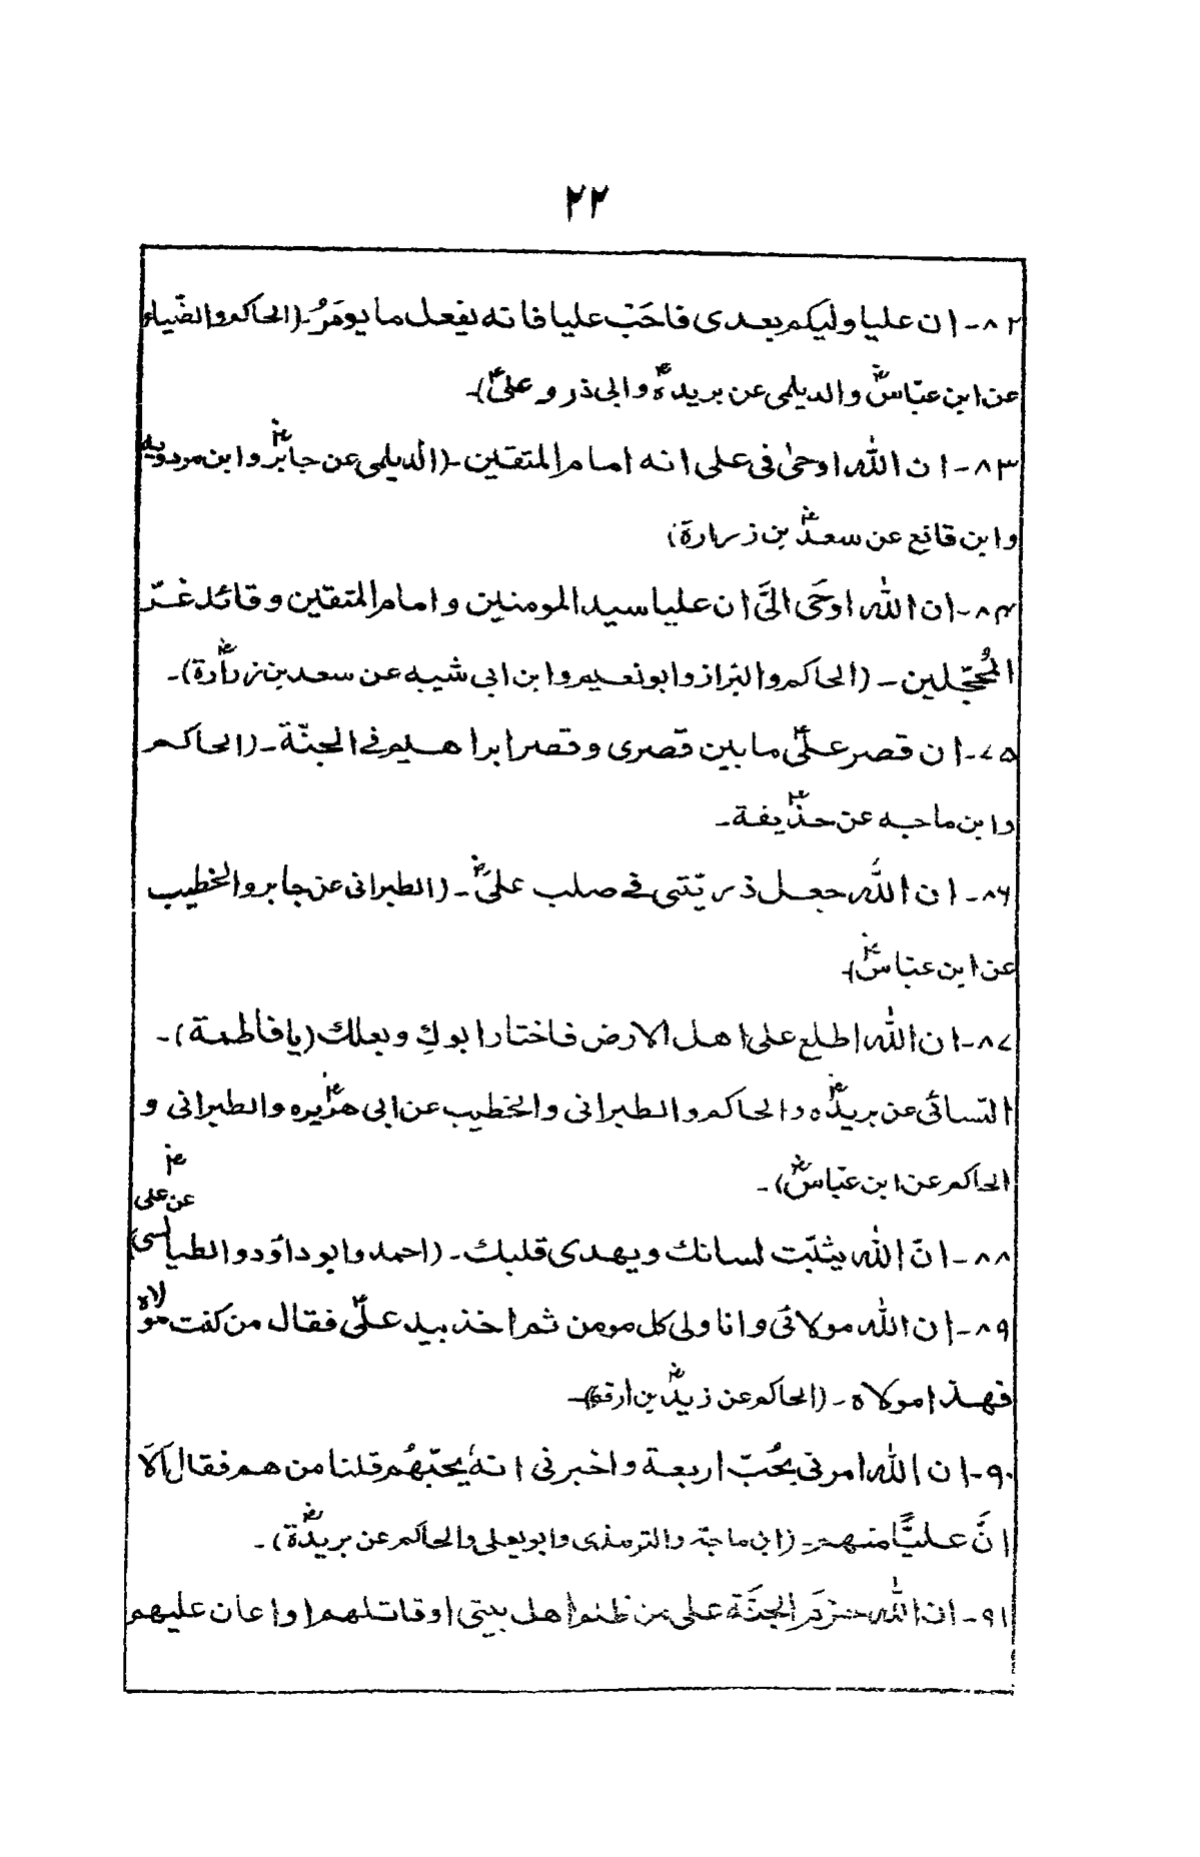 ۲۲
۸۲- ان علیا ولیکم بعدی فاحَبّ علیا فانه یفعل ما یومَرُ- (الحاکم والضّیاء
عن ابن عبّاسؓ والدیلمی عن بریدهؓ وابی ذر و علیؓ)-
۸۳- ان اللّٰه اوحیٰ فی علی انه امام المتقین- (الدیلمی عن جابرؓ وابن مردویه
وابن قانع عن سعدؓ بن زرارة)
۸۴- ان اللّٰه اوحَی الیَّ ان علیا سید المومنین و امام المتقین و قائد غُرّ
المُحجّلین - (الحاکم والبزاز وابونعیم وابن ابی شیبه عن سعد بن زرارؓة)-
۷۵- ان قصر علیؓ ما بین قصری و قصر ابراهیم فی الجنّة- (الحاکم
وابن ماجه عن حذؓیفة-
۸۶- ان اللّٰه جعل ذریّتی فی صلب علیؓ- (الطبرانی عن جابر والخطیب
عن ابن عبّاسؓ)-
۸۷- ان اللّٰه اطلع علی اهل الارض فاختار ابوكِ وبعلك (یا فاطمة)-
النّسائی عن بریدؓه والحاکم والطبرانی والخطیب عن ابی هرؓیره والطبرانی و
الحاکم عن ابن عبّاسؓ)-
۸۸- انّ اللّٰه یثبّت لسانك ویهدی قلبك- (احمد وابو داؤد والطیالسی عن علیؓ)
۸۹- ان اللّٰه مولائی وانا ولی کل مومن ثم اخذ بید علیؓ فقال من کنت مولاه
فهذا مولاه- (الحاکم عن زیدؓ بن ارقم)-
۹۰- ان اللّٰه امرنی بحُبّ اربعة واخبرنی انهٗ یحبّهُم قلنا من هم فقال اَلَا
انَّ علیًّا منهم- (ابن ماجة والترمذی وابویعلی والحاکم عن بریدؓة)-
۹۱- ان اللّٰه حرّم الجنّة علی من ظلم اهل بیتی او قاتلهم او اعان علیهم